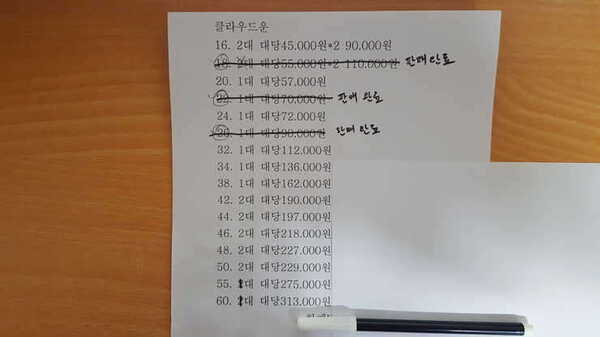 클라우드운
16. 2대 대당45.000원*2 90.000원
18. 2대 대당55.000원*2 110.000원 판매완료
20. 1대 대당57.000원
22. 1대 대당70.000원 판매 완료
24. 1대 대당72.000원
26. 1대 대당90.000원 판매 완료
32. 1대 대당112.000원
34. 1대 대당136.000원
38. 1대 대당162.000원
42. 2대 대당190.000원
44. 2대 대당197.000원
46. 2대 대당218.000원
48. 2대 대당227.000원
50. 2대 대당229.000원
55. 1대 대당275.000원
60. 1대 대당313.000원